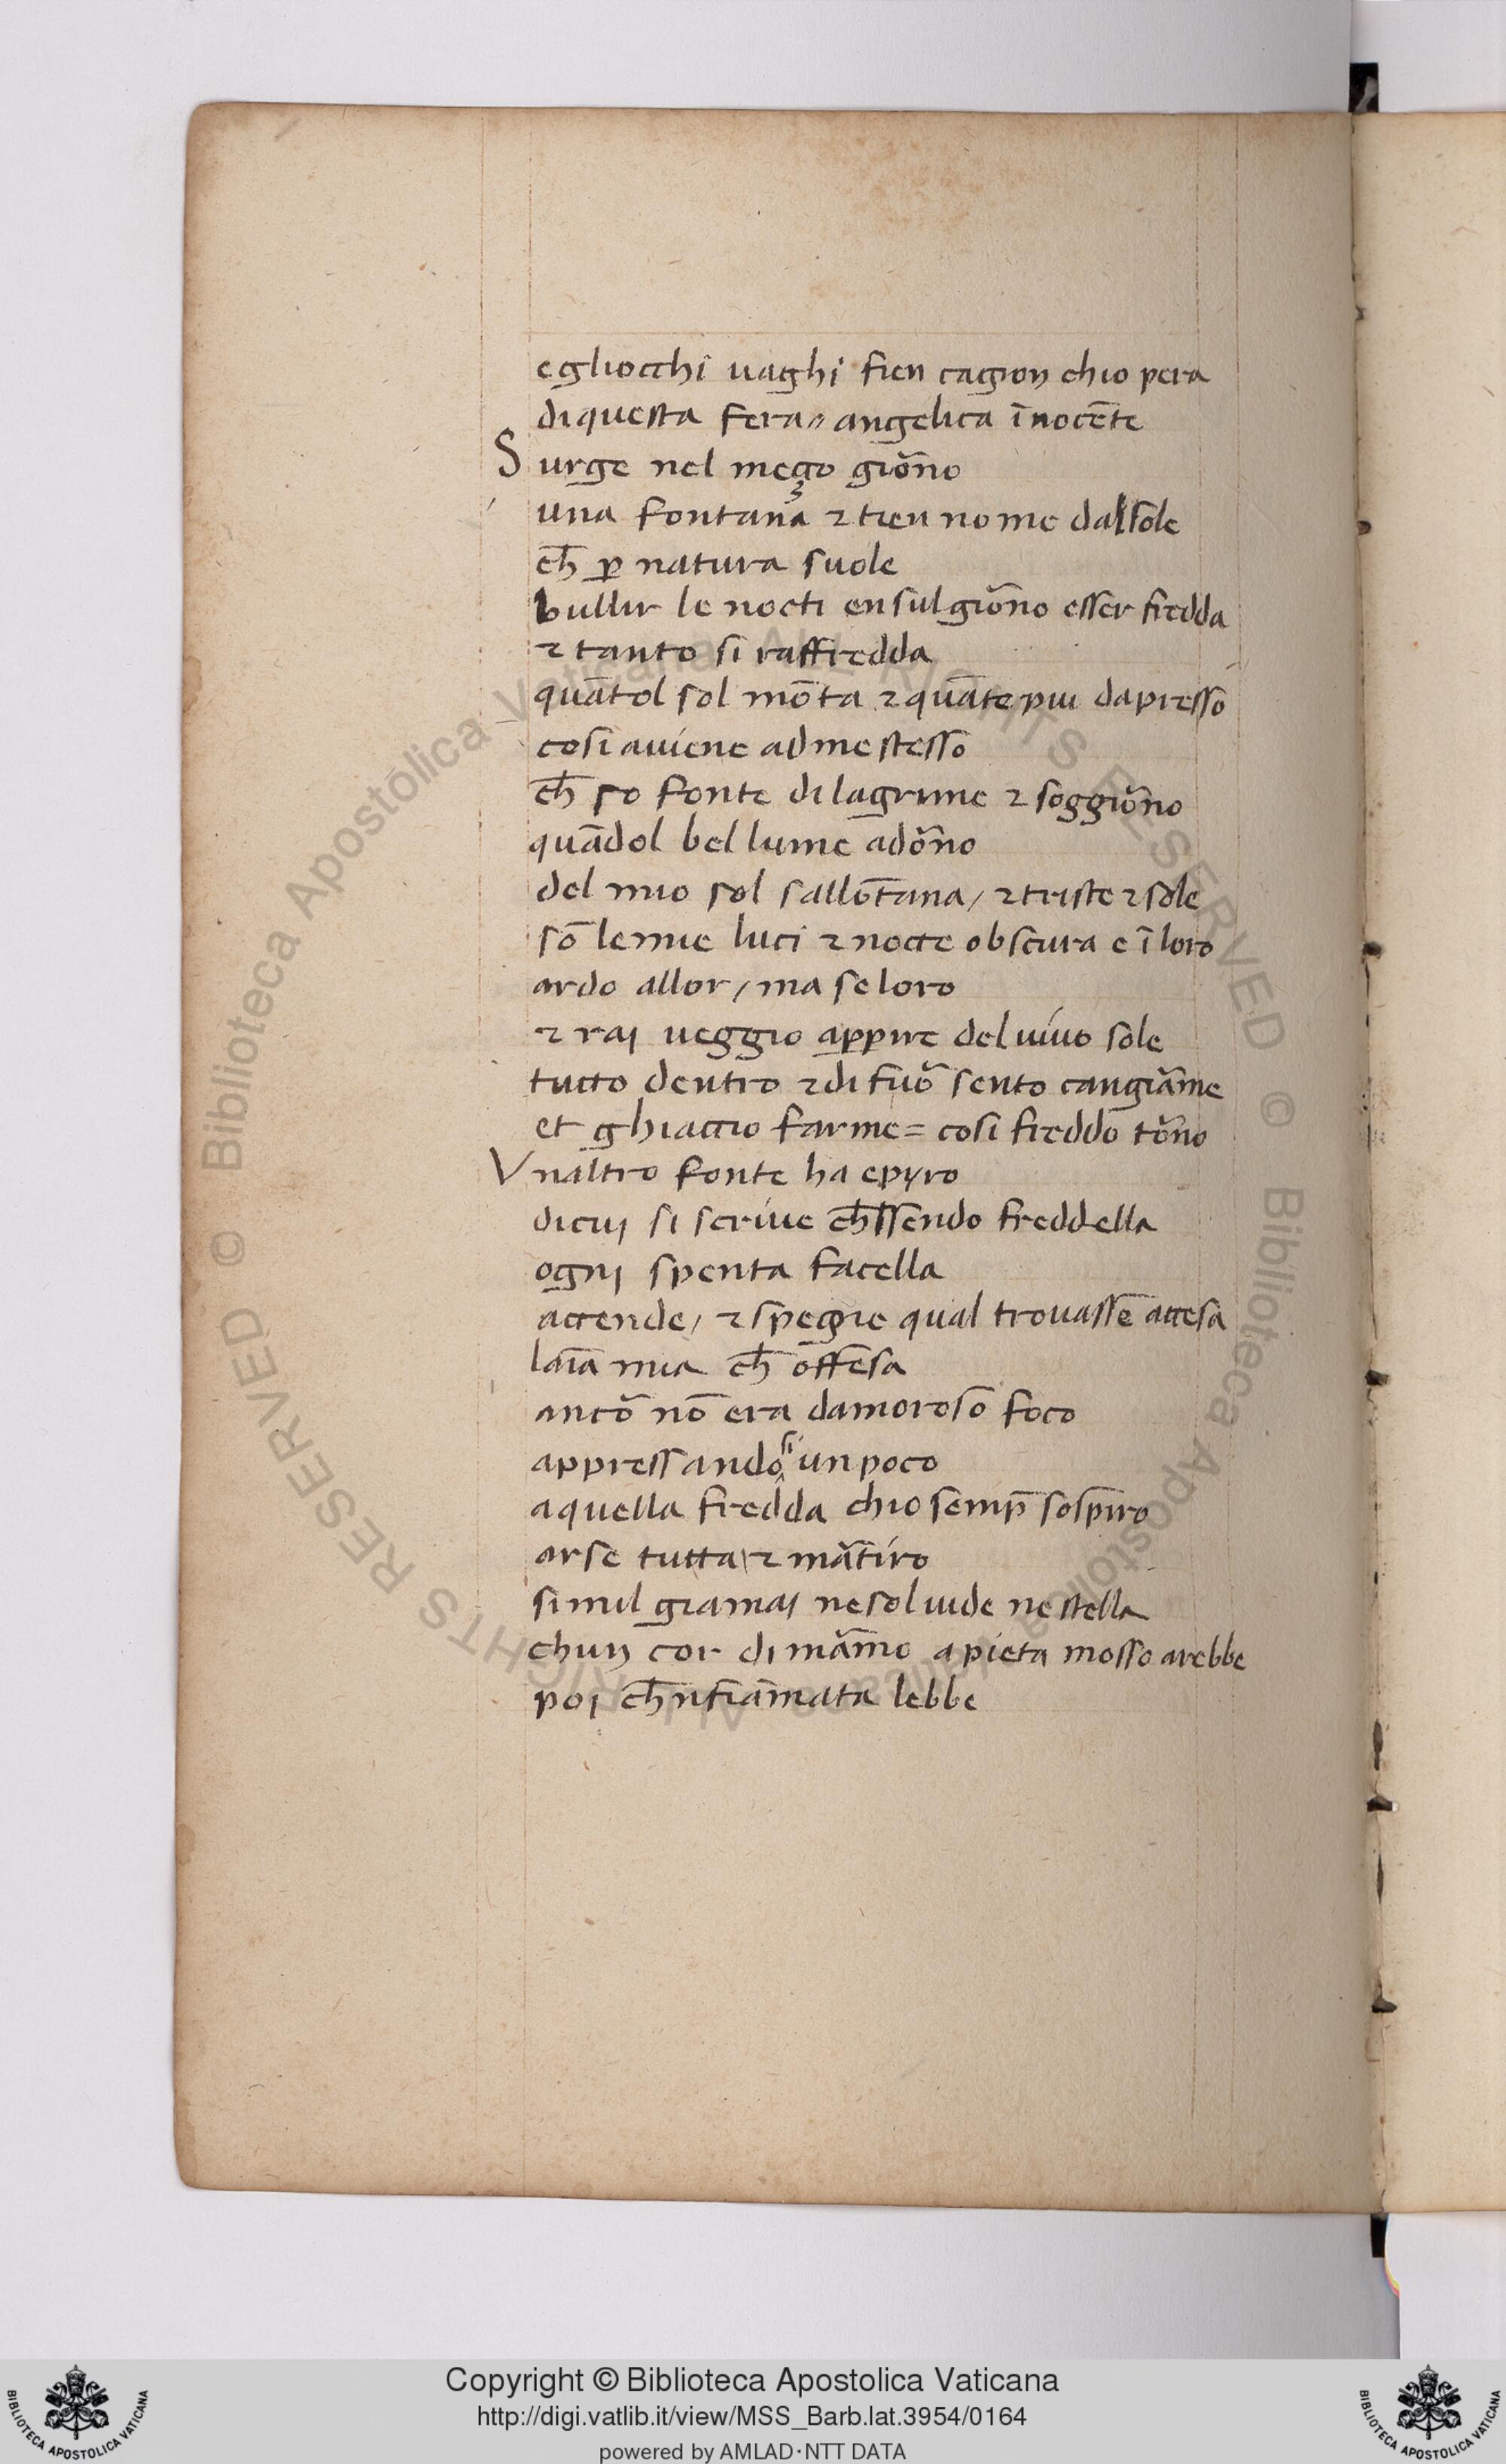 egliocchi uaghi fien cagion chio pera
diquesta fera// angelica īnocēte
Surge nel meço gioño
una fontana ⁊ tien nome dalsole
ch̄ ꝑ natura suole
bullir le nocti ensulgioño esser fredda
⁊ tanto si raffredda
quātol sol mōta ⁊ quāte piu dapresso
cosi auiene ad me stesso
ch̄ so fonte di lagrime ⁊ soggioño
quādol bel lume adoño
del mio sol sallōtana / ⁊ triste ⁊ sole
sō le mie luci ⁊ nocte obscura e ī loro
ardo allor / ma seloro
⁊ rai ueggio appire del uiuo sole
tutto dentro ⁊ di fuo᷑ sento cangia᷑me
et ghiaccio farme = cosi freddo to᷑no
Vnaltro fonte ha epyro
dicui si scriue ch̄ssendo freddella
ogni spenta facella
accende / ⁊ speg̃ie qual trouassē accesa
laīa mia ch̄ offesa
anco᷑ nō era damoroso foco
appressandosi un poco
aquella fredda chio semp̄ sosp̄iro
arse tutta ⁊ ma᷑tiro
simil giamai ne sol uide ne stella
chun cor di ma᷑mo a pieta mosso arebbe
poi ch̄nfiāmata lebbe
Copyright © Biblioteca Apostolica Vaticana
http://digi.vatlib.it/view/MSS_Barb.lat.3954/0164
powered by AMLAD·NTT DATA
BIBLIOTECA APOSTOLICA VATICANA
BIBLIOTECA APOSTOLICA VATICANA